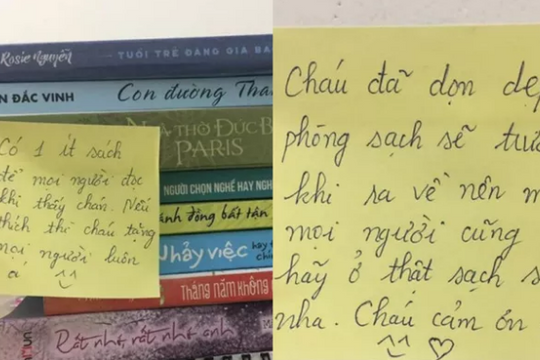 Rosie Nguyễn TUỔI TRẺ ĐÁNG GIÁ BA
N ĐẮC VINH Con đường
THỜ ĐỨC B
PARIS
NGƯỜI CHỌN NGHỀ HAY NGH
ánh đồng bất tận
Nhảy việc hay
THÁNG NĂM KHÔNG
Rất nhớ, rất nhớ anh
Có 1 ít sách
để mọi người đọc
khi thấy chán. Nếu
thích thì cháu tặng
mọi người luôn
ạ ^^
Cháu đã dọn dẹp
phòng sạch sẽ
khi ra về nên
mọi người cũng
hãy ở thật sạch s
nha. Cháu cảm ơn
^^ ♡